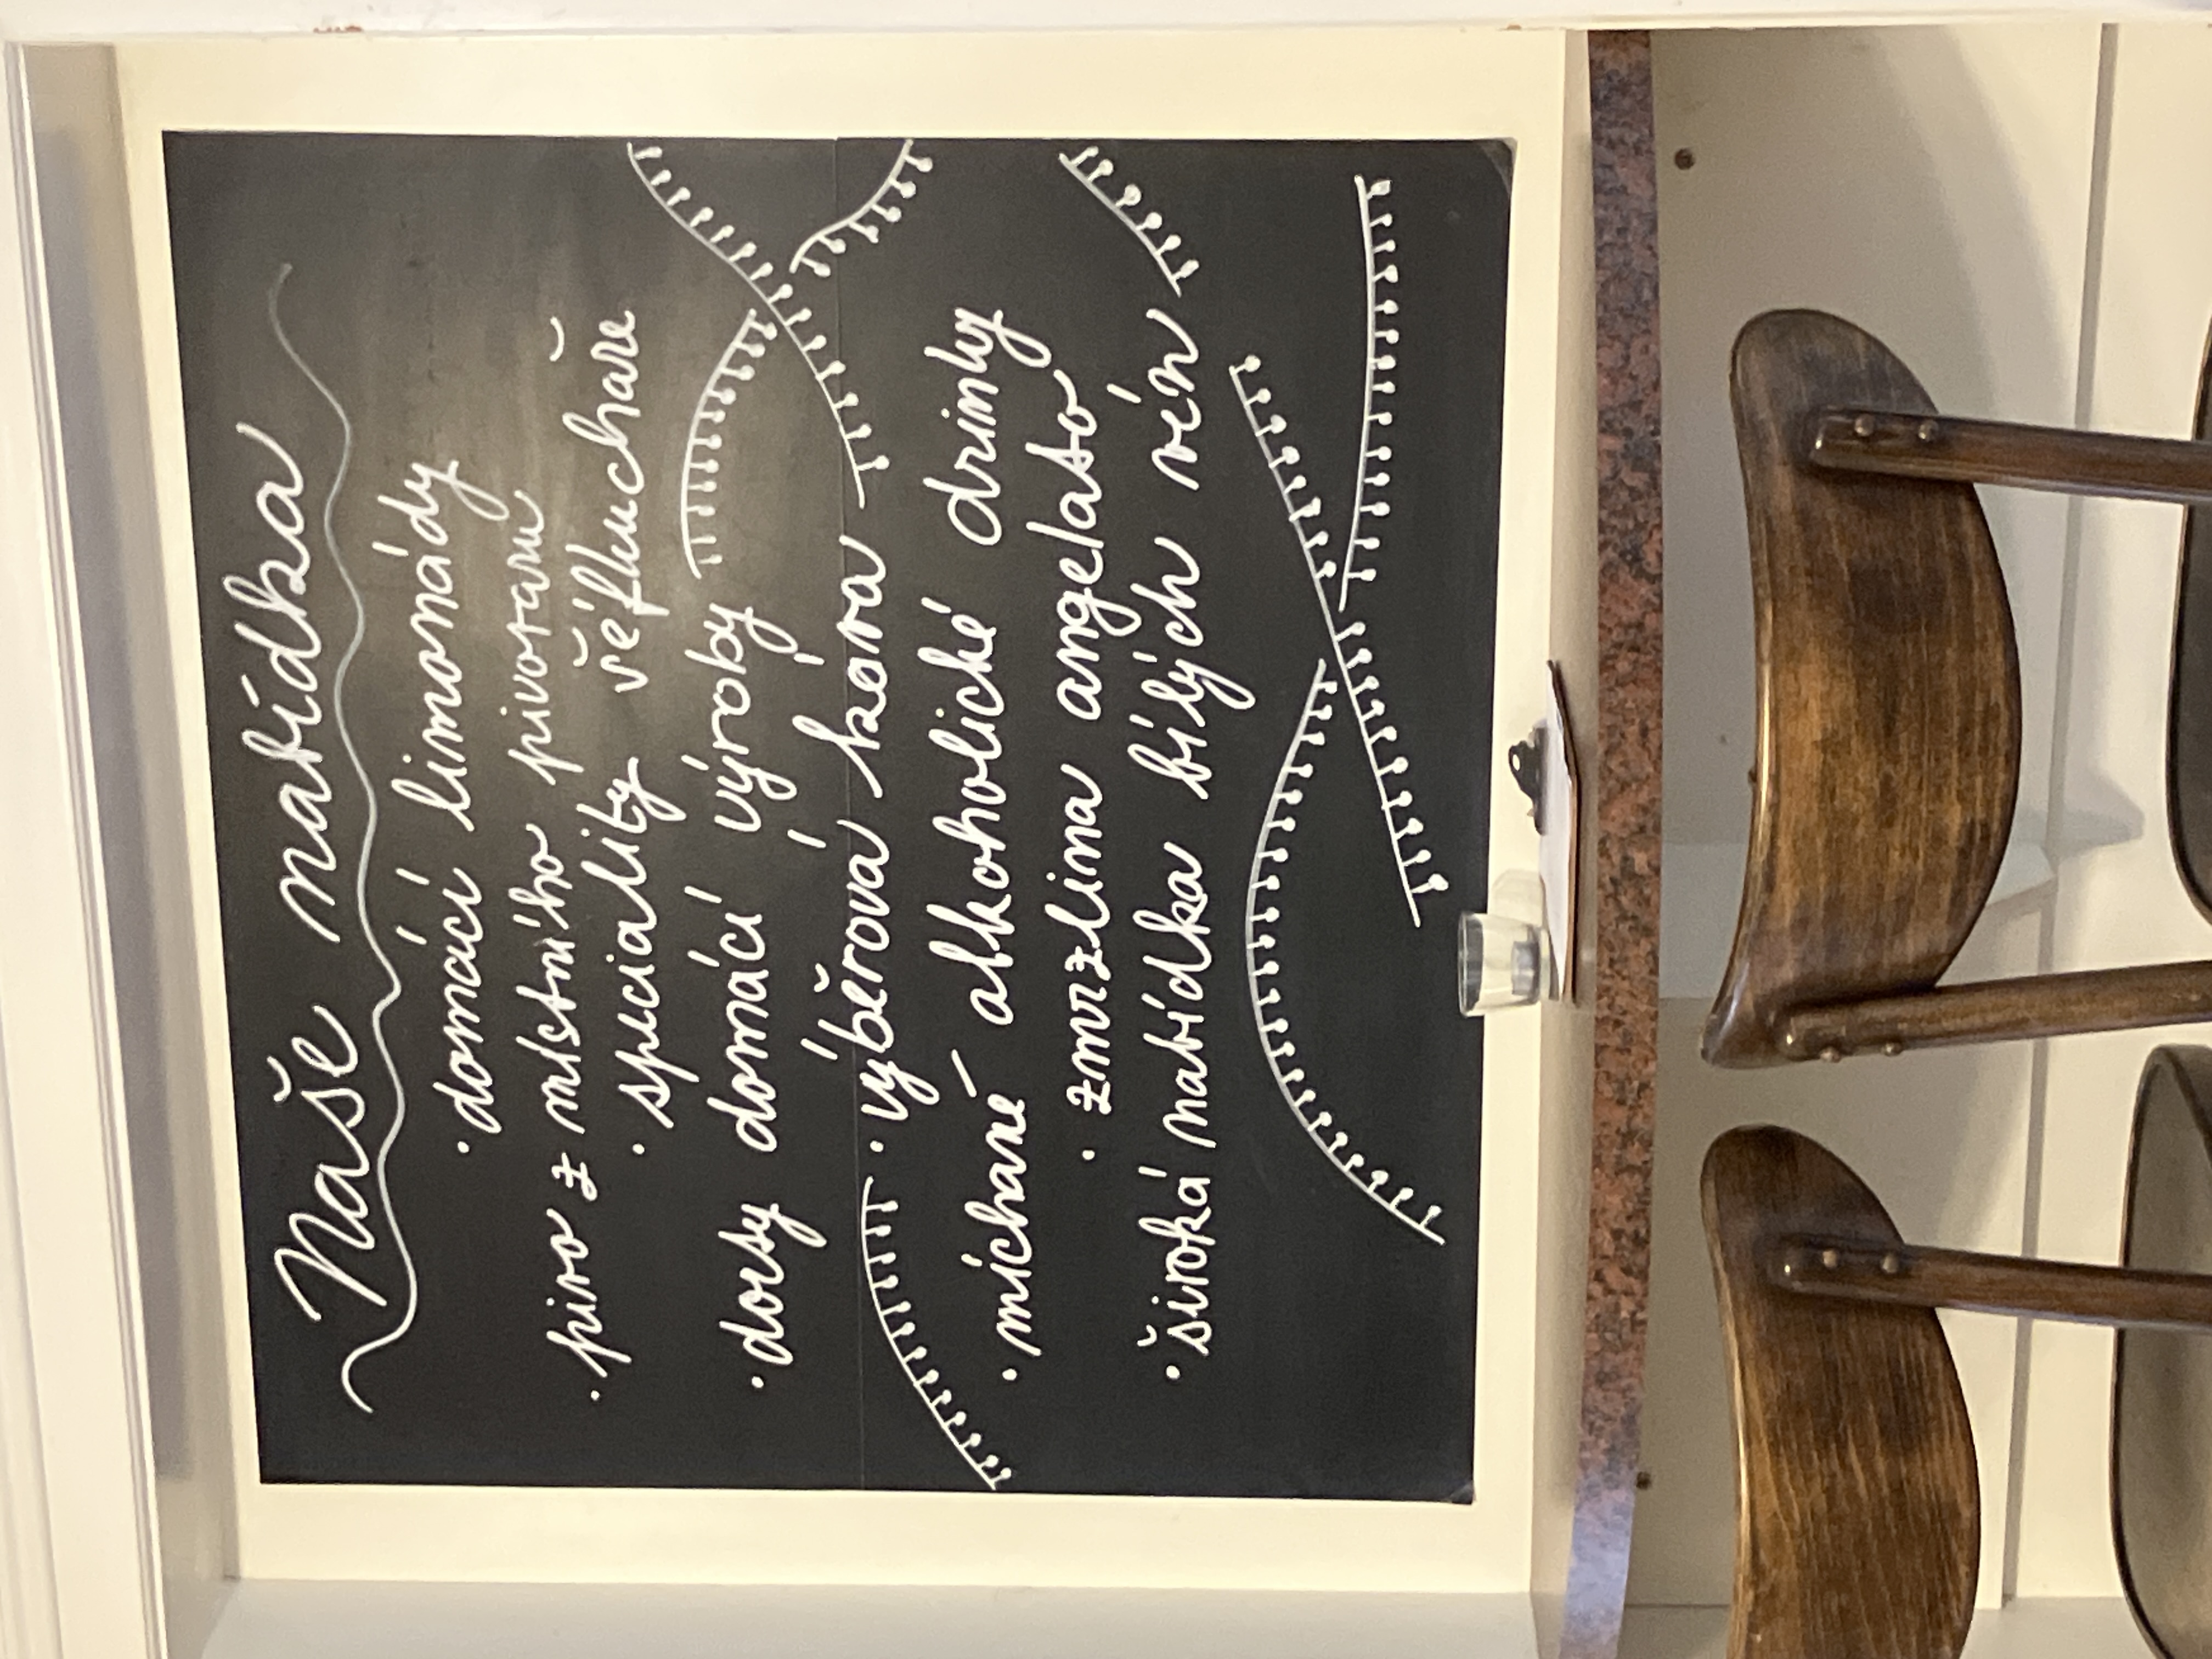 Naše nabídka
· domácí limonády
· pivo z místního pivovaru
· speciality šéfkuchaře
· dorty domácí výroby
· výběrová káva
· míchané alkoholické drinky
· zmrzlina angelato
· široká nabídka bílých vín